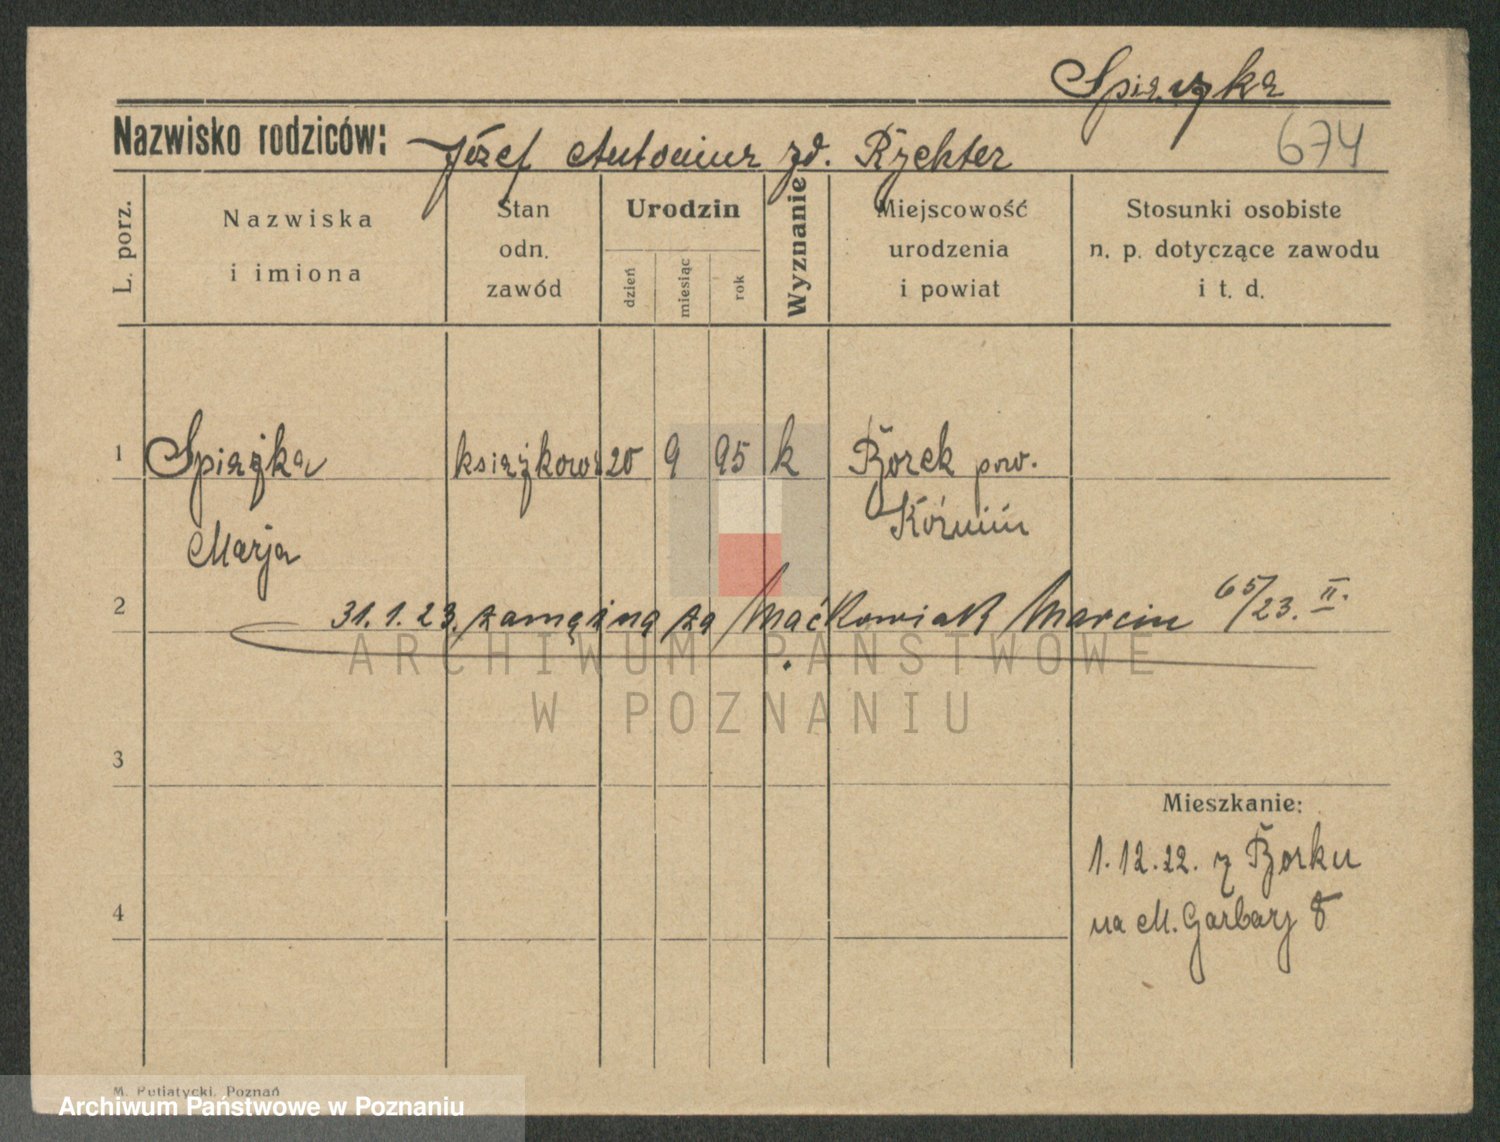 Spiączka
Nazwisko rodziców: Józef Antonina zd. Rychter
674
L. porz.
Nazwiska
i imiona
Stan
odn.
zawód
Urodzin
dzień
miesiąc
rok
Wyznanie
Miejscowość
urodzenia
i powiat
Stosunki osobiste
n. p. dotyczące zawodu
i t. d.
1 Spiączka książkowa 20 9 95 k Borek pow.
Marja Koźmin
2 31.1.23. zamężna za Maćkowiak Marcin 65/23. II.
ARCHIWUM PAŃSTWOWE
W POZNANIU
3
Mieszkanie:
1.12.22. z Borku
4 na M. Garbary 8
M. Putiatycki, Poznań
Archiwum Państwowe w Poznaniu